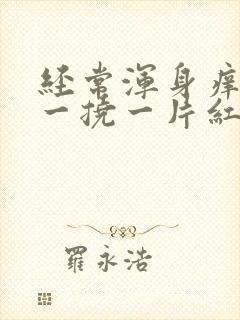 経常渾身痒
一撓一片紅
羅永浩